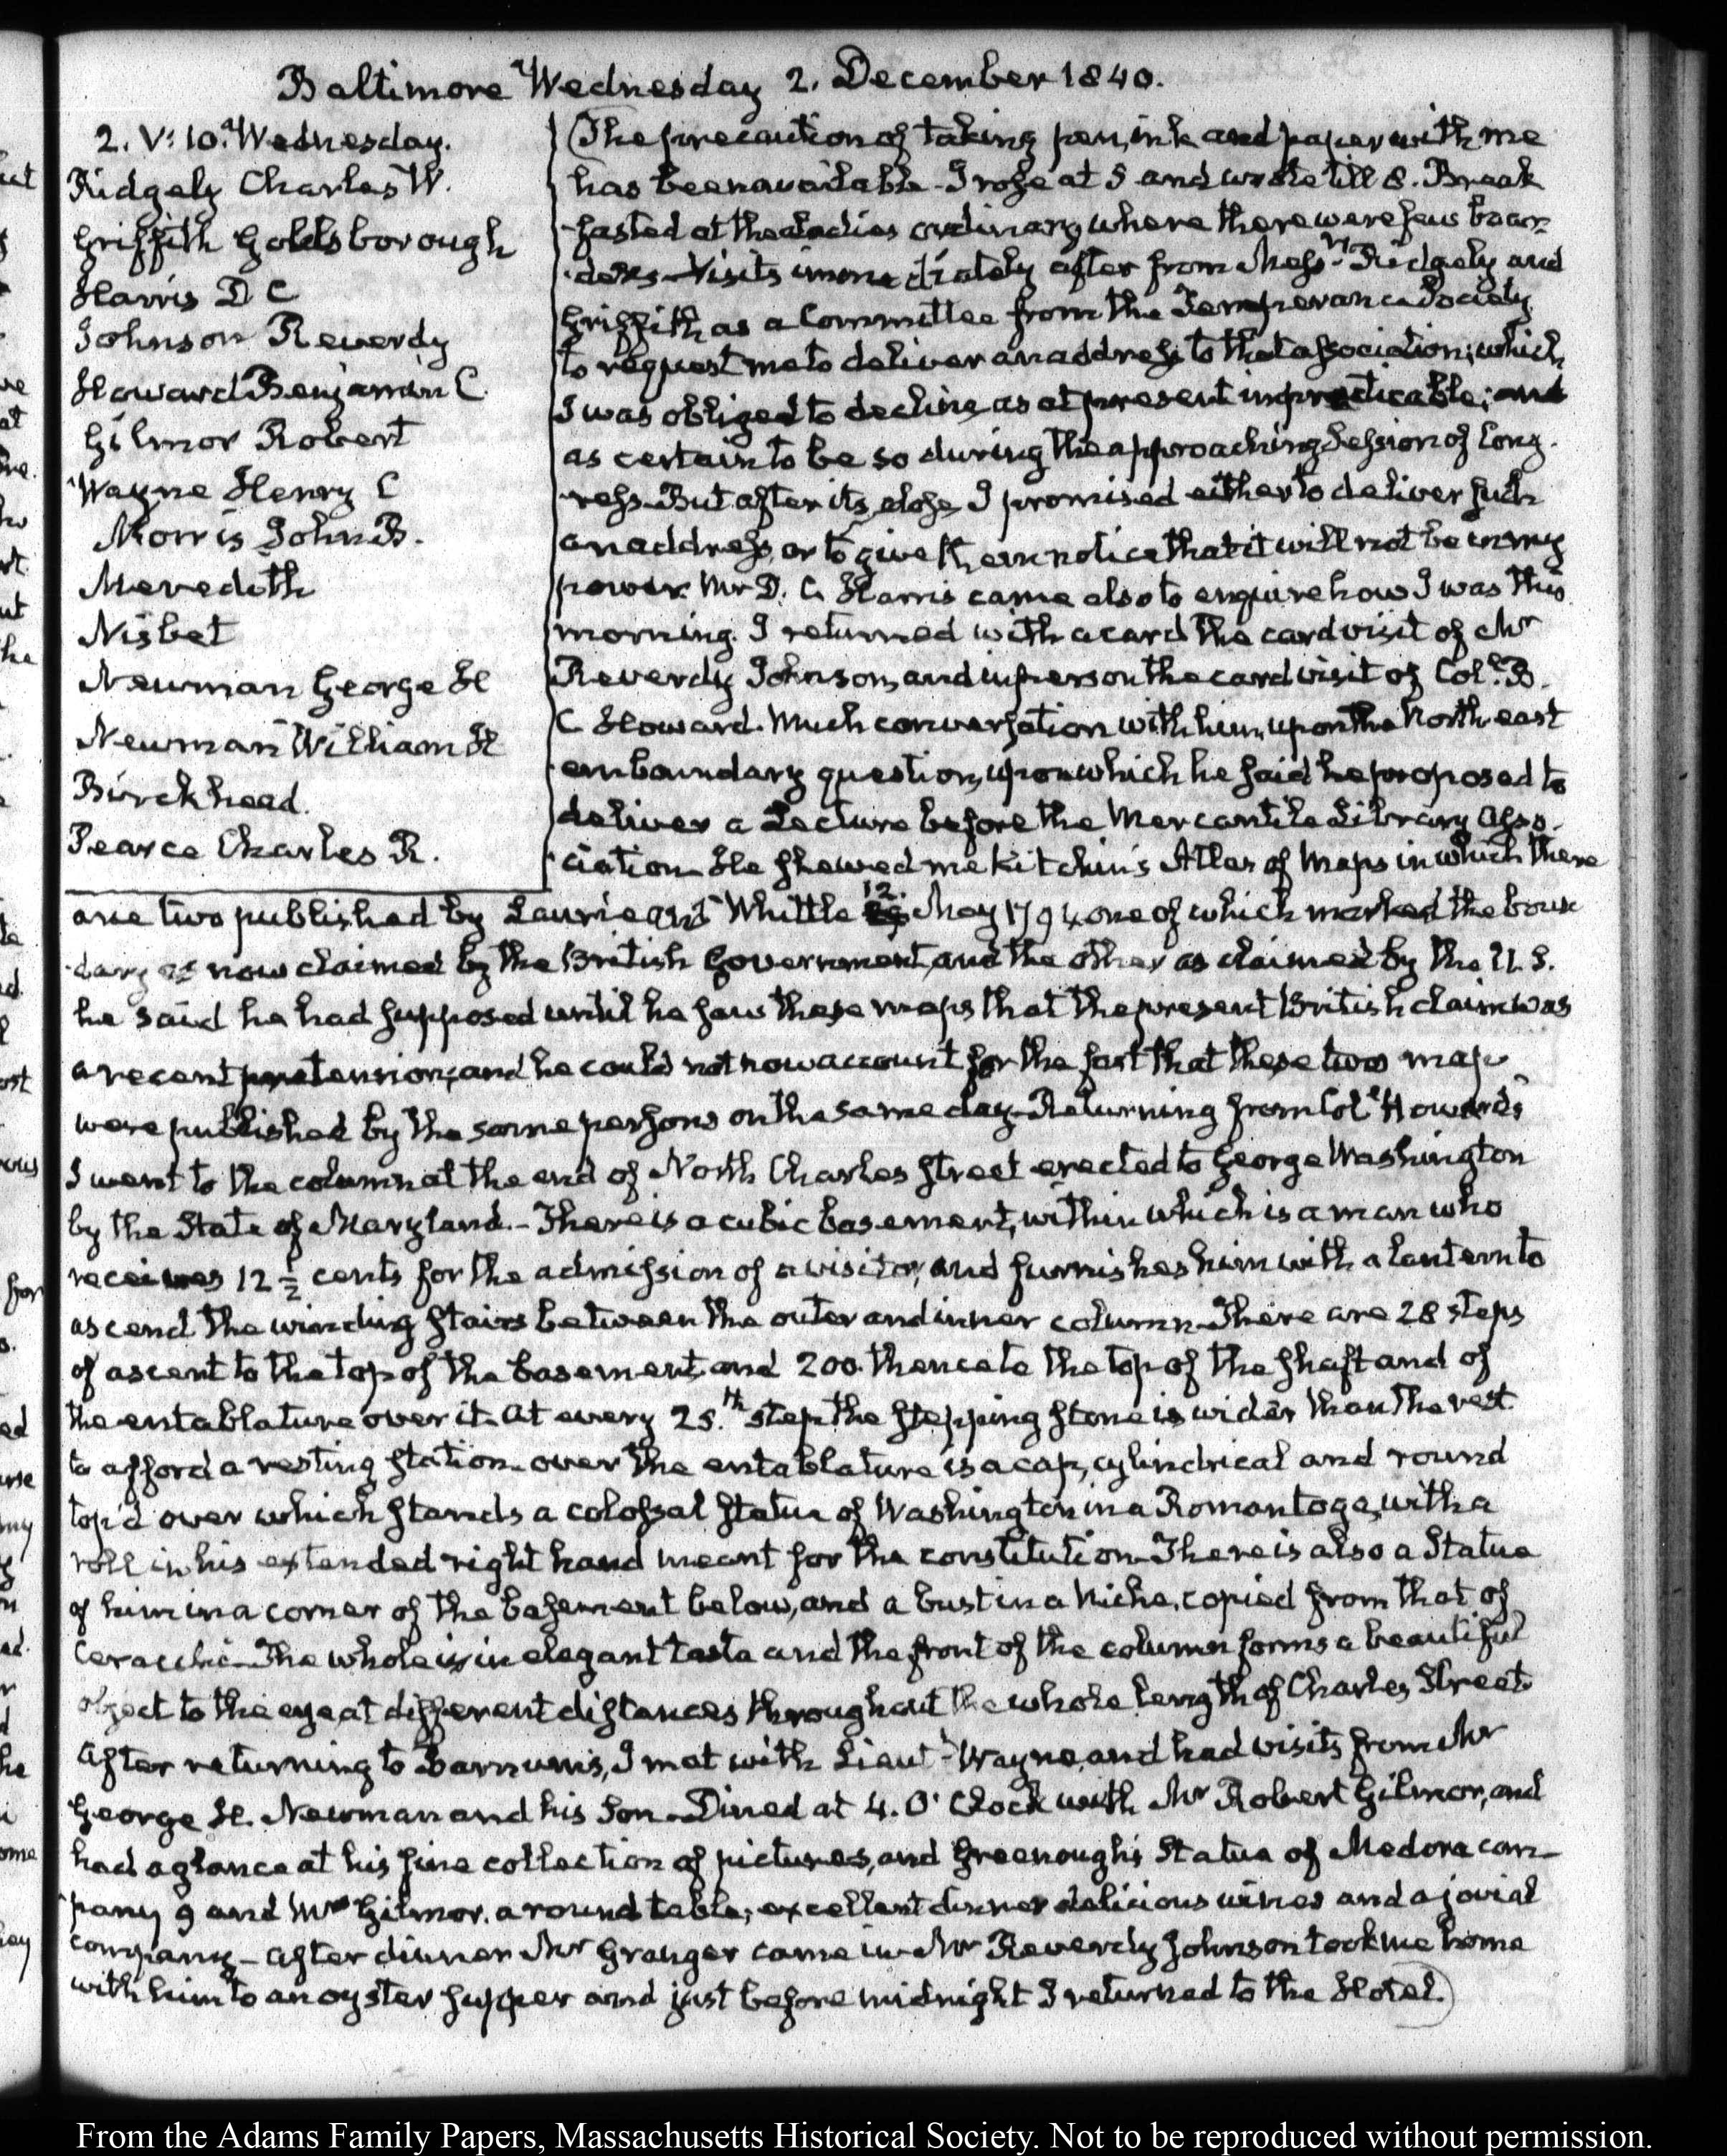 Baltimore Wednesday 2. December 1840.
2. V: 10. Wednesday.
Ridgely Charles W.
Griffith Goldsborough
Harris D C
Johnson Reverdy
Howard Benjamin C.
Gilmor Robert
Wayne Henry C
Morris John B.
Meredith
Nisbet
Newman George H
Newman William H
Birckhead.
Pearce Charles R.
The precaution of taking pen, ink and paper with me
has been available. I rose at 5 and wrote till 8. Break
-fasted at the Ladies ordinary where there were few boar-
-ders—Visits immediately after from Messrs. Ridgely and
Griffith, as a Committee from the Temperance Society
to request me to deliver an address to that association; which
I was obliged to decline as at present impracticable; and
as certain to be so during the approaching Session of Cong-
-ress. But after its close, I promised either to deliver such
an address, or to give them notice that it will not be in my
power. Mr D. C. Harris came also to enquire how I was this
morning. I returned with a card the card visit of Mr
Reverdy Johnson, and in person the card visit of Coll. B.
C Howard. Much conversation with him, upon the North east
-ern boundary question, upon which he said he proposed to
deliver a Lecture before the Mercantile Library Asso-
-ciation. He shewed me Kitchin's Atlas of Maps in which there
are two published by Laurie and Whittle 12. May 1794 one of which marked the boun
-dary as now claimed by the British Government, and the other as claimed by the U. S.
he said he had supposed until he saw these maps that the present British claim was
a recent pretension; and he could not now account for the fact that these two map
were published by the same persons on the same day—Returning from Coll Howard's
I went to the column at the end of North Charles Street erected to George Washington
by the State of Maryland.—There is a cubic basement, within which is a man who
receives 12 ½ cents for the admission of a visitor, and furnishes him with a lantern to
ascend the winding stairs between the outer and inner column. There are 28 steps
of ascent to the top of the basement, and 200. thence to the top of the shaft and of
the entablature over it. At every 25.th step the stepping stone is wider than the rest
to afford a resting station. over the entablature is a cap, cylindrical and round
top'd over which stands a colossal statue of Washington in a Roman toga, with a
roll in his extended right hand meant for the constitution. There is also a Statue
of him in a corner of the basement below, and a bust in a niche, copied from that of
Ceracchi. The whole is in elegant taste and the front of the column forms a beautiful
object to the eye at different distances throughout the whole length of Charles Street.
After returning to Barnum's, I met with Lieutt. Wayne, and had visits from Mr
George H. Newman and his Son. Dined at 4. O'Clock with Mr Robert Gilmor, and
had a glance at his fine collection of pictures, and Greenough's Statue of Medora com-
-pany 9 and Mrs Gilmor. a round table; excellent dinner delicious wines and a jovial
company—after dinner Mr Granger came in—Mr Reverdy Johnson took me home
with him to an oyster supper and just before midnight I returned to the Hotel.
From the Adams Family Papers, Massachusetts Historical Society. Not to be reproduced without permission.